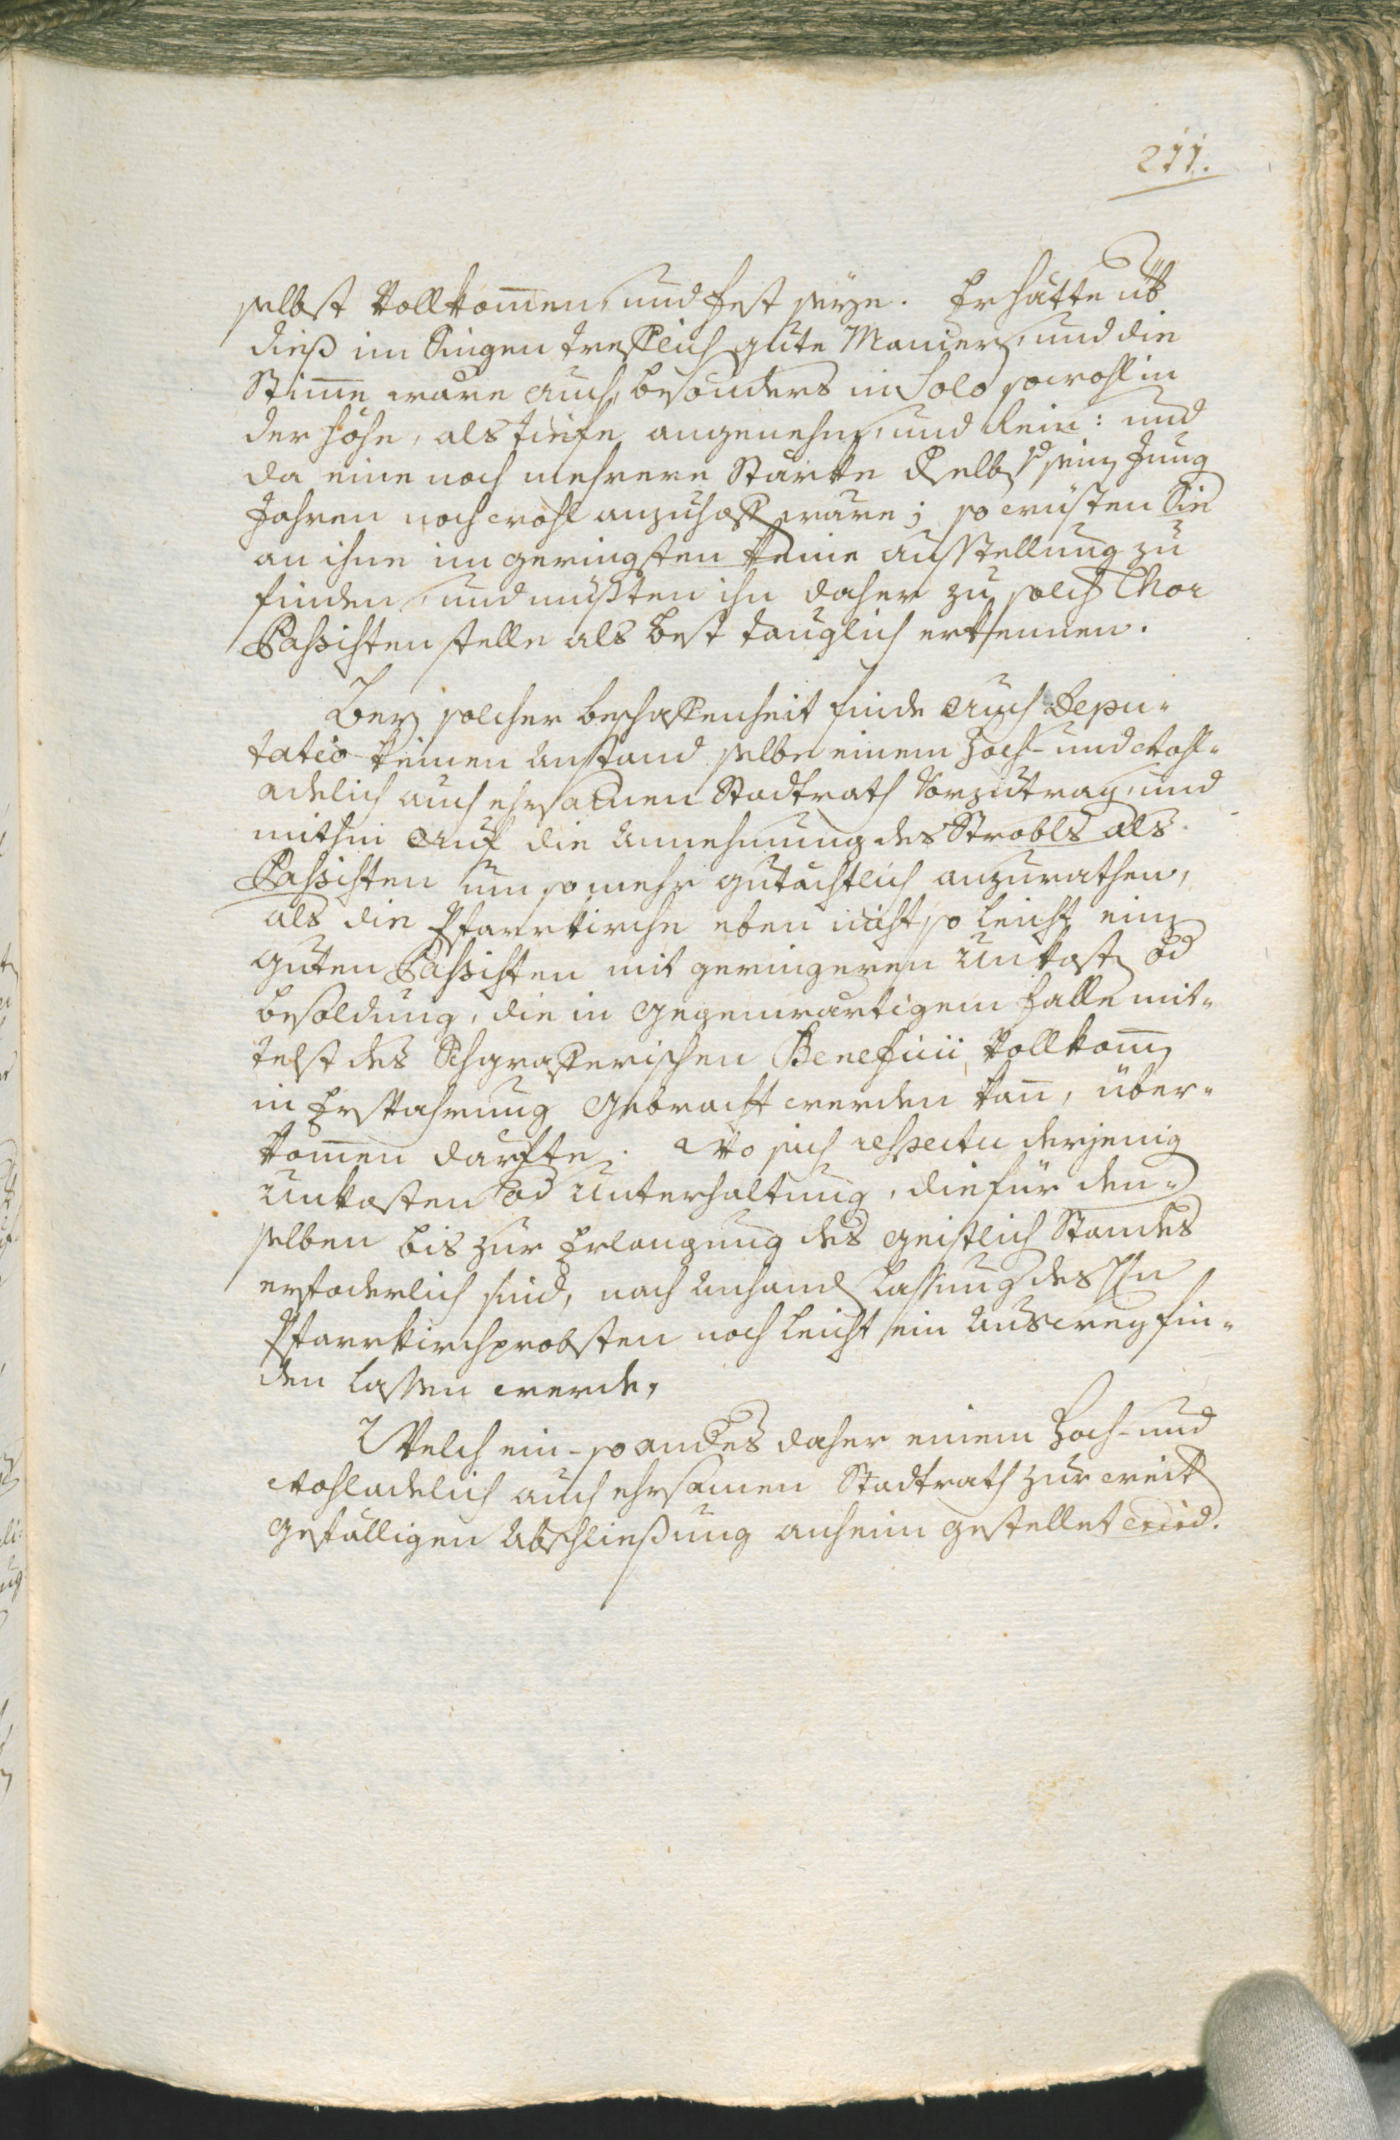 211.
selbst Vollkom̄en, und fest seye. Er hätte üb
dieß im Singen treflich gute Manier, und die
Stim̄e wäre auch, besonders in Solo sowohl in
der Höhe, als Tiefe angenehm, und Rein: und
da eine noch mehrere Stärke selbst seinen Jung
Jahren noch wohl anzuhoffen wäre; so wüsten Sie
an ihne im geringsten keine ausstellung zu
finden, und müßten ihn daher zu solch Chor
Bassisten stelle als best tauglich erkennen.
Bey solcher beschaffenheit finde auch Depu-
tatio keinen Anstand selbe einem Hoch- und wohl-
adelich auch ehrsamen Stadtrath Vorzutrag, und
mithin auf die Annehmung des Strobls als
Bassisten um so mehr gutächtlich anzurathen,
als die Pfarrkirche eben nicht so leicht ein
guten Bassisten mit geringeren Unkosten od
besoldung, die in gegenwärtigem Falle mit-
telst des Schgrafferischen Beneficii, Vollkom̄
in Erstahrung gebracht werden kan̄, über-
kom̄en darfte. Wo sich respectu derjenig
Unkosten od Unterhaltung, die für den-
selben bis zur Erlangung des geistlich Standes
erfoderlich sind, nach Anhand Lassung des Hn
Pfarrkirchprobsten noch leicht ein Ausweeg fin-
den lassen werde,
Welch ein- so andes daher einem Hoch- und
wohladelich auch ehrsamen Stadtrath zur weit
gefälligen Abschließung anheim gestellet wird.